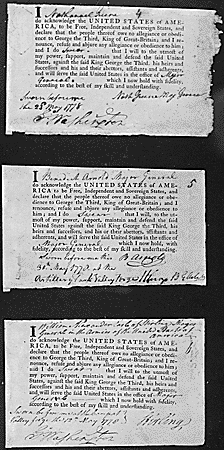 I Nathanael Greene
do acknowledge the UNITED STATES of AME-
RICA, to be Free, Independent and Sovereign States, and
declare that the people thereof owe no allegiance or obedi-
ence to George the Third, King of Great-Britain; and I re-
nounce, refuse and abjure any allegiance or obedience to
him; and I do Swear that I will, to the utmost of
my power, support, maintain and defend the said United
States, against the said King George the Third, his heirs
and successors and his and their abettors, assistants and adherents,
and will serve the said United States in the office of Major
General which I now hold with fidelity,
according to the best of my skill and understanding.
Sworn before me
Nath Greene
1778
4
I Benedict Arnold Major General
do acknowledge the UNITED STATES of AME-
RICA, to be Free, Independent and Sovereign States, and
declare that the people thereof owe no allegiance or obe-
dience to George the Third, King of Great-Britain; and I
renounce, refuse and abjure any allegiance or obedience to
him; and I do Swear that I will, to the ut-
most of my power, support, maintain and defend the said
United States, against the said King George the Third, his
heirs and successors, and his and their abettors, assistants and
adherents, and will serve the said United States in the office of
Major General which I now hold, with
fidelity, according to the best of my skill and understanding.
Sworn before me this
B Arnold
30th May 1778 at the
Artillery Park Valley Forge
5
I William Alexander Earl of Stirling Major
do acknowledge the UNITED STATES of AME-
RICA, to be Free, Independent and Sovereign States, and
declare that the people thereof owe no allegiance or obedi-
ence to George the Third, King of Great-Britain; and I re-
nounce, refuse and abjure any allegiance or obedience to
him; and I do Swear that I will to the utmost of
my power, support, maintain and defend the said United
States, against the said King George the Third, his heirs
and successors and his and their abettors, assistants and adherents,
and will serve the said United States in the office of Major
General which I now hold with fidelity,
according to the best of my skill and understanding.
Stirling
1778
6